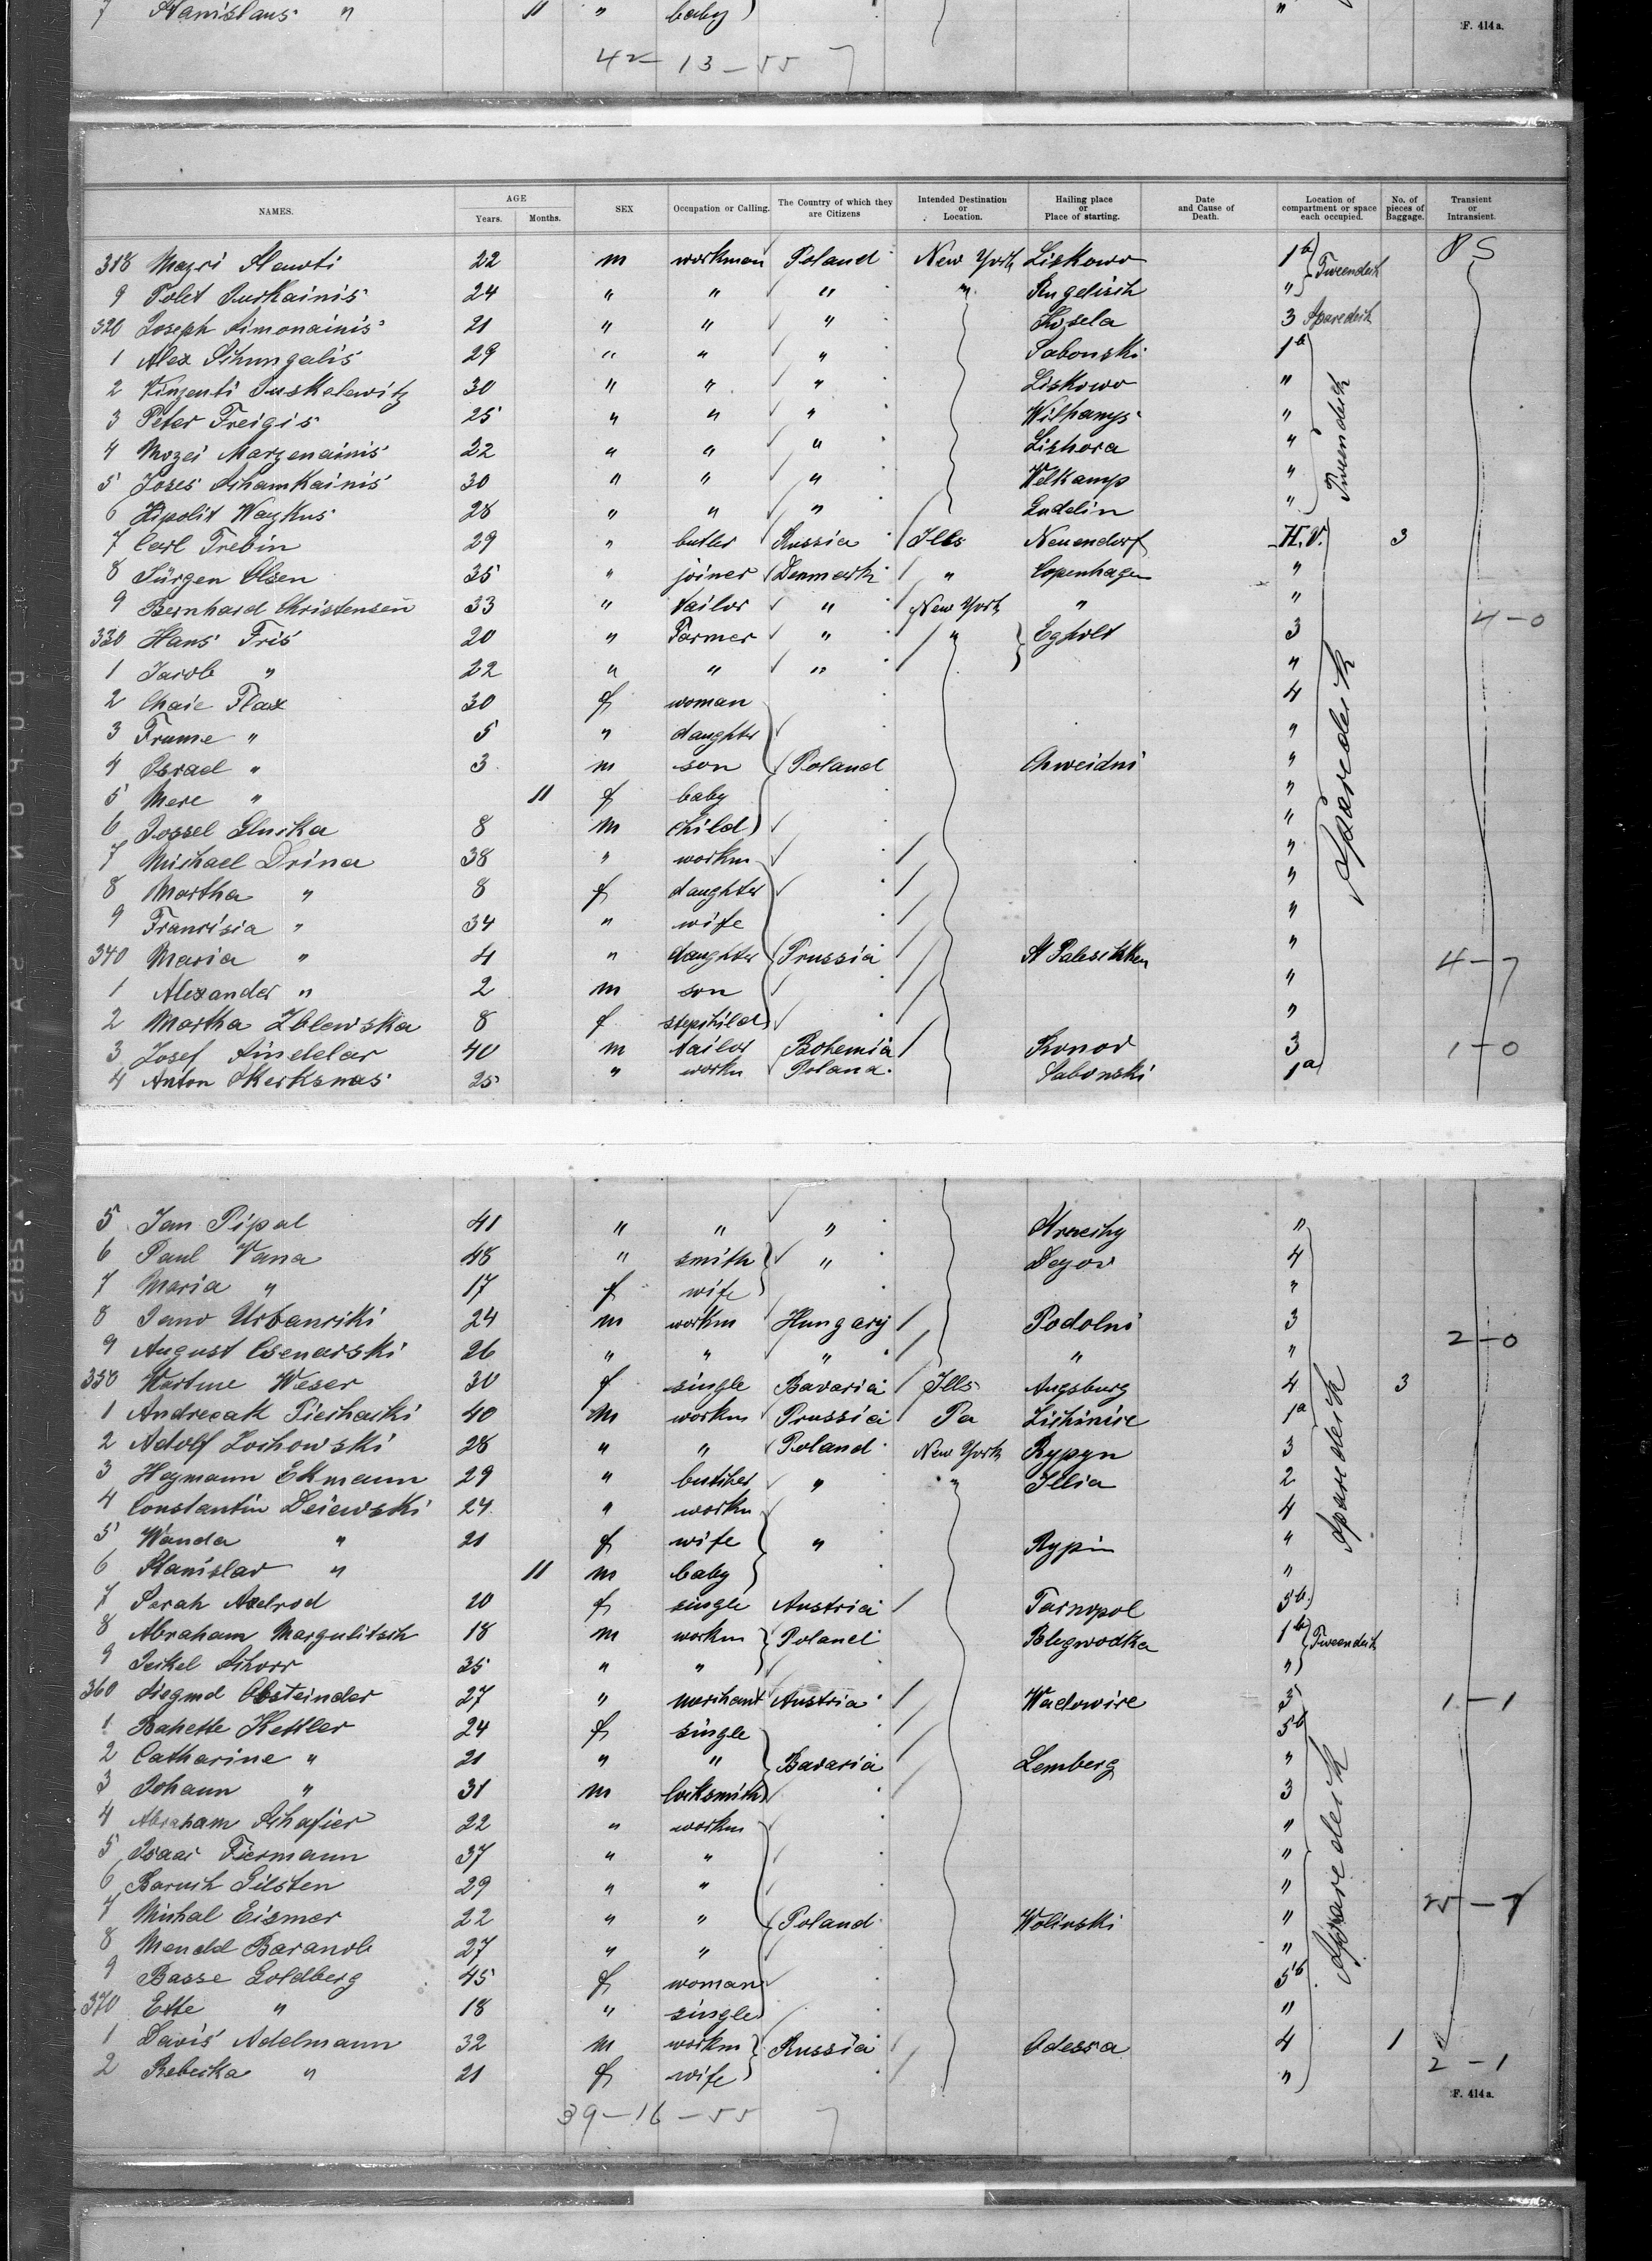 7 Stanislaus " 11 " baby "
F. 414a.
42 - 13 - 55
NAMES. AGE Years. Months. SEX Occupation or Calling. The Country of which they are Citizens Intended Destination or Location. Hailing place or Place of starting. Date and Cause of Death. Location of compartment or space each occupied. No. of pieces of Baggage. Transient or Intransient.
318 Mazri 22 m workman Poland New York Liskowo 1b Tweendeck
9 Polet Jurkainis 24 " " " " "
320 Joseph Simonainis 21 " " " Kosela 3 Sparedeck
1 Alex Schungalis 29 " " " Sabonski 1b
2 Vinzenti Juskelewitz 30 " " " Liskowo " Tweendeck
3 Peter Freigis 25 " " " "
4 Mozei Marzenainis 22 " " " Lishora "
5 Joses Schamkainis 30 " " " Welkamp "
6 Hipolit Wazkus 28 " " " Endelin "
7 Carl Trebin 29 " butler Russia Ills Neuendorf H.V. 3
8 Jürgen Olsen 35 " joiner Denmark " Copenhagen "
9 Bernhard Christensen 33 " tailor " New York " " 4-0
330 Hans Fris 20 " Farmer " " Egholt 3
1 Jacob " 22 " " " "
2 Chaie Flax 30 f woman 4
3 Frume " 5 " daughter "
4 Israel " 3 m son Poland Chweidni "
5 Mere " 11 f baby "
6 Jossel 8 m child "
7 Michael Drina 38 " workm "
8 Martha " 8 f daughter "
9 Francisia " 34 " wife "
340 Maria " 4 " daughter Prussia " 4-7
1 Alexander " 2 m son "
2 Martha Zblewska 8 f stepchild "
3 Josef Sindelar 40 m tailor Bohemia Konov 3 1-0
4 Anton Skerksnas 25 " workm Poland Sabonski 1a
Sparedeck
5 Jan Pipal 41 " " " "
6 Paul Vana 48 " smith " 4
7 Maria " 17 f wife "
8 Jano Urbanciki 24 m workm Hungary Podolni 3
9 August Csenarski 26 " " " " " 2-0
350 Weser 30 f single Bavaria Ills Augsburg 4 3
1 Andrecak Piechacki 40 m workm Prussia Pa 1a
2 Adolf Zochowski 28 " " Poland New York Rypyn 3
3 Heymann Ekmann 29 " butcher " " Illia 2
4 Constantin Deiewski 24 " workm 4
5 Wanda " 21 f wife " Rypin "
6 Stanislav " 11 m baby "
Sparedeck
7 Sarah Axelrod 20 f single Austria Tarnopol 5b
8 Abraham Margulitsch 18 m workm Poland 1b Tweendeck
9 Jeikel Schorr 35 " " "
360 Siegmd Obsteinder 27 " merchant Austria Wadowice 3 1-1
1 Babette Kettler 24 f single 5b
2 Catharine " 21 " " Bavaria Lemberg "
3 Johann " 31 m locksmith 3
4 Abraham Schafier 22 " workm "
5 Isaac Fiermann 37 " " "
6 Baruch Gilsten 29 " " "
7 Michal Eismer 22 " " Poland Wolinski " 25-7
8 Mendel Baranob 27 " " "
9 Basse Goldberg 45 f woman 5b
370 Ette " 18 " single "
1 Davis Adelmann 32 m workm Russia Odessa 4 1
2 Rebecka " 21 f wife " 2-1
Sparedeck
F. 414a.
39-16-55